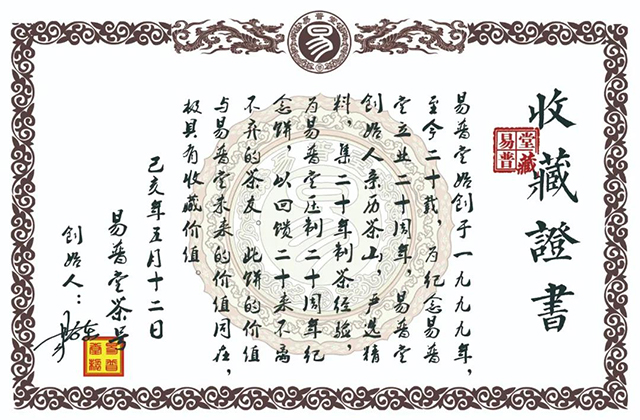 易普堂
易
收藏證書
易普堂藏
易普堂始创于一九九九年，
至今二十载，为纪念易普
堂立业二十周年，易普堂
创始人亲历茶山，严选精
料，集二十年制茶经验，
为易普堂压制二十周年纪
念饼，以回馈二十来不离
不弃的茶友。此饼的价值
与易普堂未来的价值同在，
极具有收藏价值。
己亥年五月十二日
易普堂茶号
创始人：